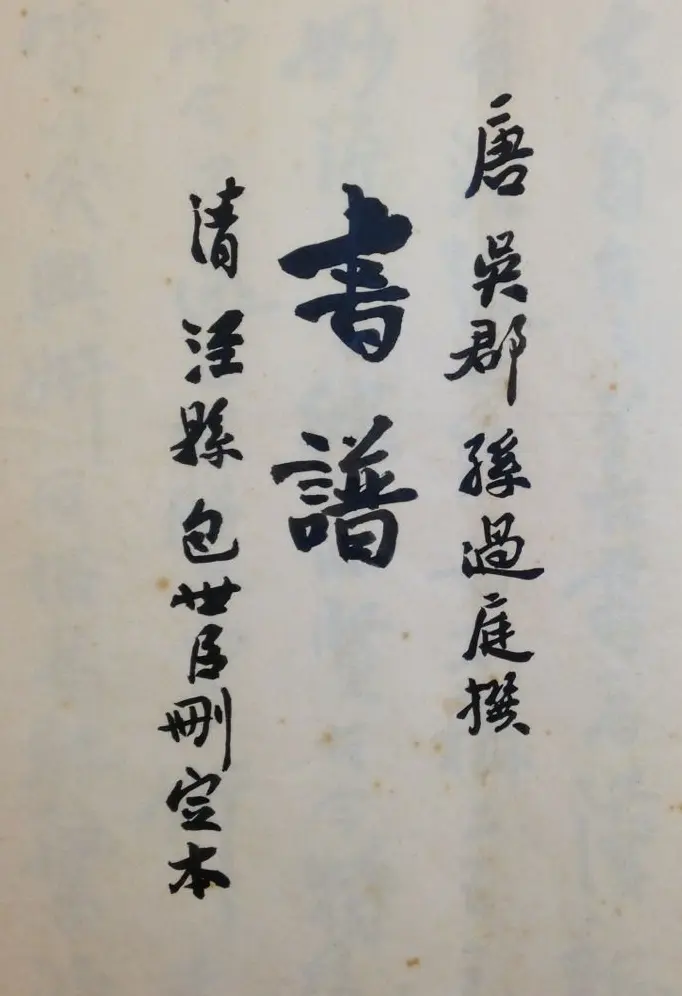 唐吳郡孫過庭撰
書譜
清涇縣包世臣刪定本